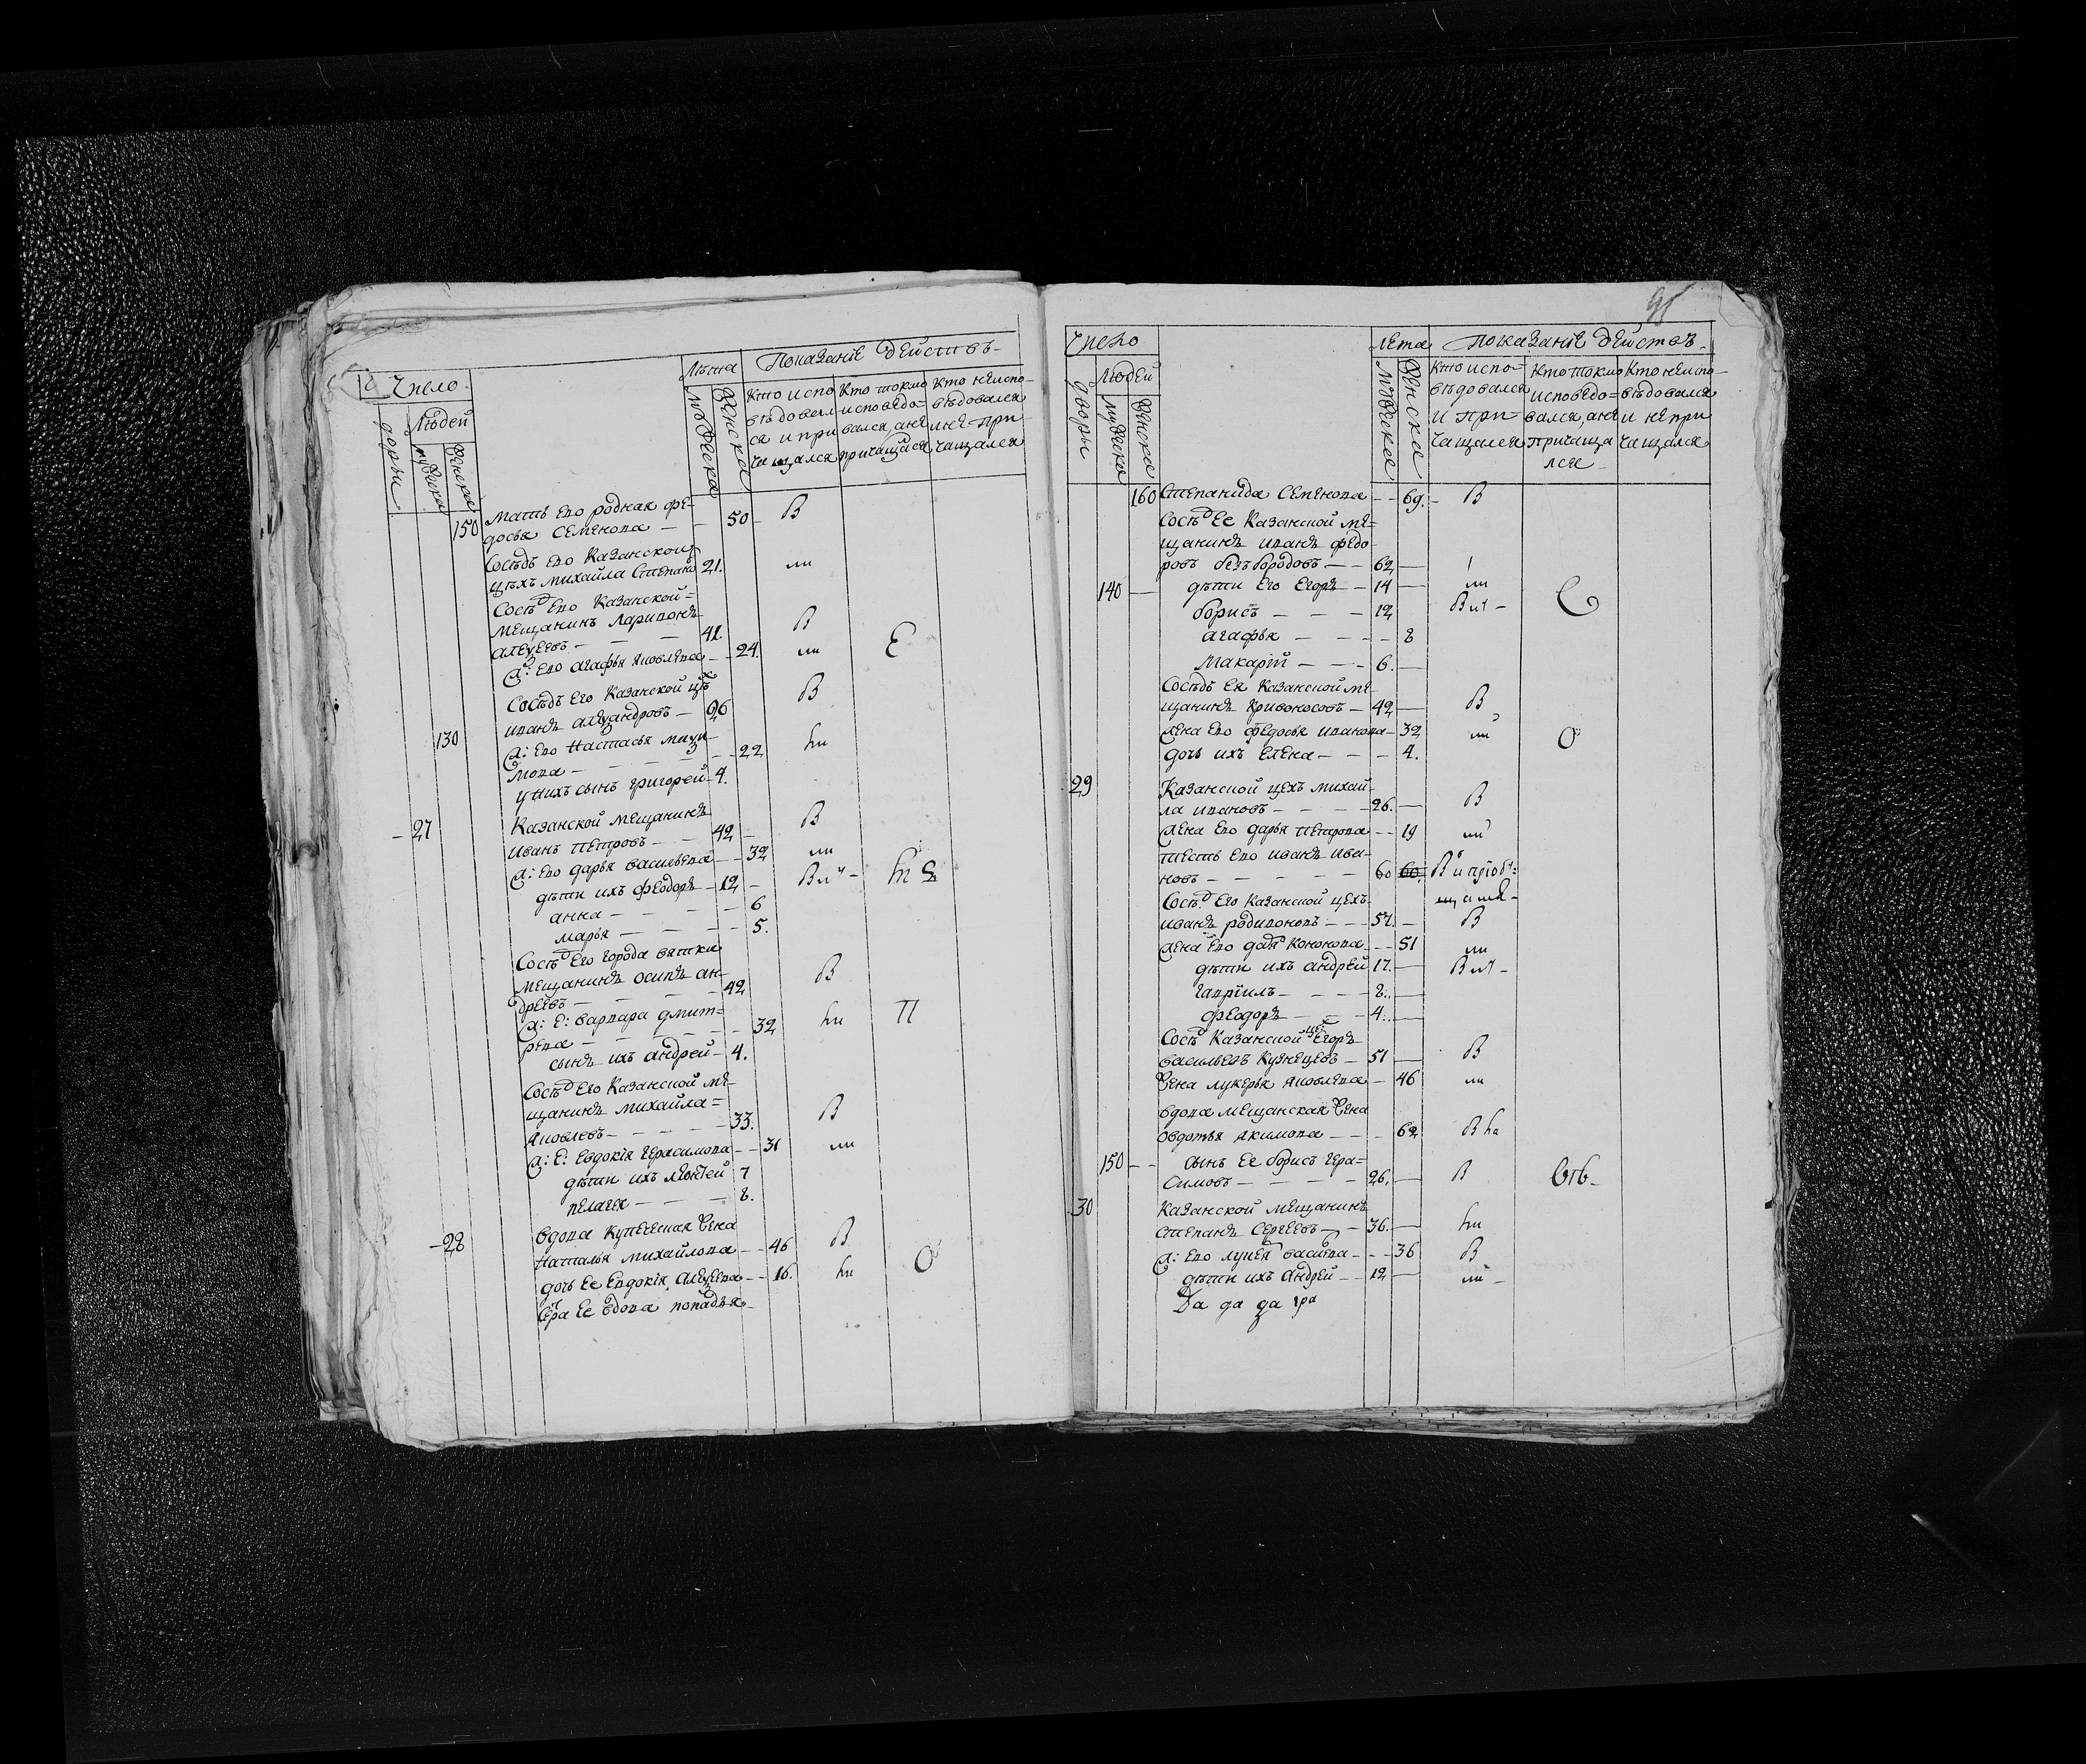 Число
Лѣта Показаніе Действъ
дворы Людей мужеска женска
мужеска женска
Кто испо
вѣдовал
ся и при
чащался
Кто токмо
исповѣдо=
вался, а не
причащался
Кто неиспо-
вѣдовался
и не при
чащался
150 Мать ево родная фе-
досья Семенова — 50 В
Сосѣдъ ево Казанской
цѣхъ Михайла Степано 21.
Сосѣд ево Казанской=
мещанинъ Ларивонъ
алеѯеевъ — 41. В
ж: ево агафья яковлева — 24.
Сосѣдъ Его Казанской цѣх
130 иванъ алеѯандровъ — 26 В
ж: ево Настасья маѯи
мова — 22
у них сынъ григорей 4.
27 Казанской мещанинъ
иванъ петровъ — 42 В
ж: ево дарья васильева — 32
дѣти ихъ феодоръ — 12
анна — 6
марья — 5.
Сосѣд Его города вятки
мещанинъ осипъ ан-
дреевъ — 42 В
ж: Е: варвара дмит=
рева — 32 П
сынъ ихъ андрей — 4.
Сосѣд Его Казанской ме-
щанинъ михайла=
яковлевъ — 33. В
ж: Е: Евдокія герасимова — 31
дѣти ихъ 7
пелагея — 8.
28 вдова купеческая жена
Наталья михайлова — 46 В
дочь Ее Евдокія алеѯеева — 16.
Ее вдова попадья
Число
Лета Показаніе действъ
дворы Людей мужеска женска
мужеска женска
Кто испо-
вѣдовался
и при-
чащался
Кто токмо
исповѣдо=
вался, а не
причаща
лся
Кто неиспо-
вѣдовался
и не при
чащался
160 Степанида Семенова — 69. В
Сосѣд Ее Казанской ме=
щанинъ иванъ федо
ровъ безбородовъ — 62
140 дѣти Его Егоръ — 14
борисъ — 12
агафья — 8
Макарій — 6.
Сосѣдъ Ея Казанской ме
щанинъ Кривоносовъ — 42 В
жена ево федосья иванова — 32
дочь ихъ Елена — 4.
29 Казанской цехъ михай
ла ивановъ — 26. В
жена ево дарья петрова — 19
тесть ево иванъ ива-
новъ — 60 60.
Сосѣд. Его Казанской цехъ
иванъ родивоновъ — 57. В
жена ево Кононова — 51
дѣти ихъ андрей 17.
гавріилъ — 8.
феодоръ — 4.
Сосѣд Казанской цех Егоръ
васильевъ Кузнецовъ — 51 В
жена лукерья яковлева — 46
вдова мещанская жена
овдотья акимова — 62
150 сынъ Ее борисъ гера=
симовъ — 26. В
30 Казанской мещанинъ
степанъ Сергеевъ — 36.
ж: ево — 36 В
дѣти ихъ Андрей — 12
Да да да